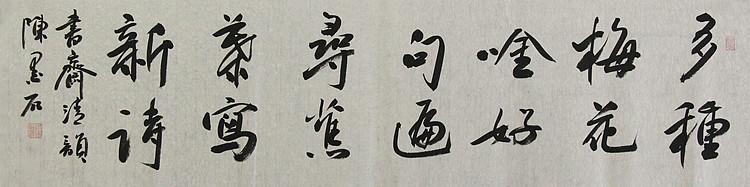 多種
梅花
唫好
句遍
尋蕉
葉寫
新詩
書齋清韻
陳墨石